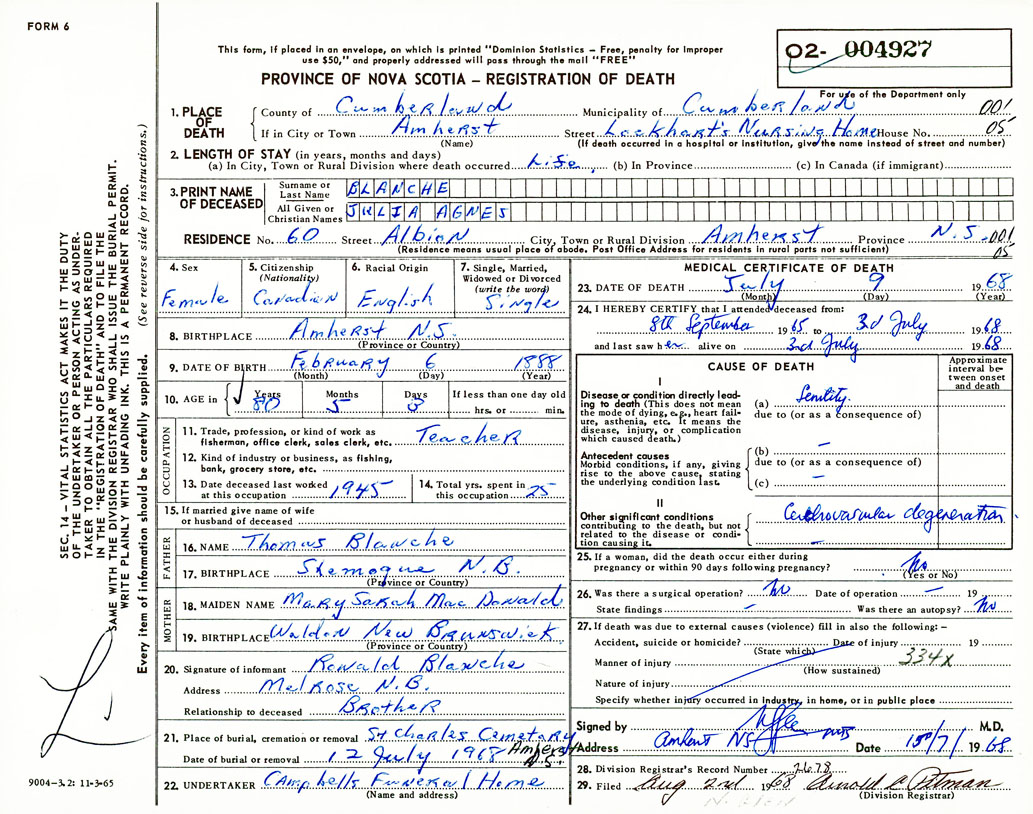 FORM 6
This form, if placed in an envelope, on which is printed "Dominion Statistics – Free, penalty for improper
use $50," and properly addressed will pass through the mail "FREE"
PROVINCE OF NOVA SCOTIA – REGISTRATION OF DEATH
02- 004927
For use of the Department only
001
05
1. PLACE OF DEATH
County of Cumberland Municipality of Cumberland
If in City or Town Amherst Street Lockhart's Nursing Home House No.
(Name) (If death occurred in a hospital or institution, give the name instead of street and number)
2. LENGTH OF STAY (in years, months and days)
(a) In City, Town or Rural Division where death occurred Life (b) In Province (c) In Canada (if immigrant)
3. PRINT NAME OF DECEASED
Surname or Last Name BLANCHE
All Given or Christian Names JULIA AGNES
RESIDENCE No. 60 Street Albion City, Town or Rural Division Amherst Province N.S. 001
(Residence means usual place of abode. Post Office Address for residents in rural parts not sufficient) 05
4. Sex
Female
5. Citizenship
(Nationality)
Canadian
6. Racial Origin
English
7. Single, Married,
Widowed or Divorced
(write the word)
Single
8. BIRTHPLACE Amherst N.S.
(Province or Country)
9. DATE OF BIRTH February 6 1888
(Month) (Day) (Year)
10. AGE in Years Months Days If less than one day old
80 5 3 hrs. or min.
OCCUPATION
11. Trade, profession, or kind of work as
fisherman, office clerk, sales clerk, etc. Teacher
12. Kind of industry or business, as fishing,
bank, grocery store, etc.
13. Date deceased last worked
at this occupation 1945
14. Total yrs. spent in
this occupation 25
15. If married give name of wife
or husband of deceased
FATHER
16. NAME Thomas Blanche
17. BIRTHPLACE Shemogue N.B.
(Province or Country)
MOTHER
18. MAIDEN NAME Mary Sarah MacDonald
19. BIRTHPLACE Waldon New Brunswick
(Province or Country)
20. Signature of informant Ronald Blanche
Address Melrose N.B.
Relationship to deceased Brother
21. Place of burial, cremation or removal St Charles Cemetary
Amherst N.S.
Date of burial or removal 12 July 1968
22. UNDERTAKER Campbells Funeral Home
(Name and address)
MEDICAL CERTIFICATE OF DEATH
23. DATE OF DEATH July 9 1968
(Month) (Day) (Year)
24. I HEREBY CERTIFY that I attended deceased from:
8th September 1965 to 3d July 1968
and last saw her alive on 3rd July 1968
CAUSE OF DEATH
Approximate
interval be-
tween onset
and death
I
Disease or condition directly lead-
ing to death (This does not mean
the mode of dying, e.g., heart fail-
ure, asthenia, etc. It means the
disease, injury, or complication
which caused death.)
(a) Senility.
due to (or as a consequence of)
Antecedent causes
Morbid conditions, if any, giving
rise to the above cause, stating
the underlying condition last.
(b) –
due to (or as a consequence of)
(c) –
II
Other significant conditions
contributing to the death, but not
related to the disease or condi-
tion causing it.
Cerebrovascular degeneration.
–
25. If a woman, did the death occur either during
pregnancy or within 90 days following pregnancy? No
(Yes or No)
26. Was there a surgical operation? No Date of operation – 19
State findings – Was there an autopsy? No
27. If death was due to external causes (violence) fill in also the following: –
Accident, suicide or homicide? Date of injury 19
(State which)
Manner of injury 334X
(How sustained)
Nature of injury
Specify whether injury occurred in industry, in home, or in public place
Signed by M.D.
Address Amherst NS Date 15/7/ 1968
28. Division Registrar's Record Number 2678
29. Filed Aug 2nd 1968 Arnold Pitman
(Division Registrar)
SEC. 14 – VITAL STATISTICS ACT MAKES IT THE DUTY
OF THE UNDERTAKER OR PERSON ACTING AS UNDER-
TAKER TO OBTAIN ALL THE PARTICULARS REQUIRED
IN THE "REGISTRATION OF DEATH" AND TO FILE THE
SAME WITH THE DIVISION REGISTRAR WHO SHALL ISSUE THE BURIAL PERMIT.
WRITE PLAINLY WITH UNFADING INK. THIS IS A PERMANENT RECORD.
Every item of information should be carefully supplied. (See reverse side for instructions.)
9004-3.2: 11-3-65